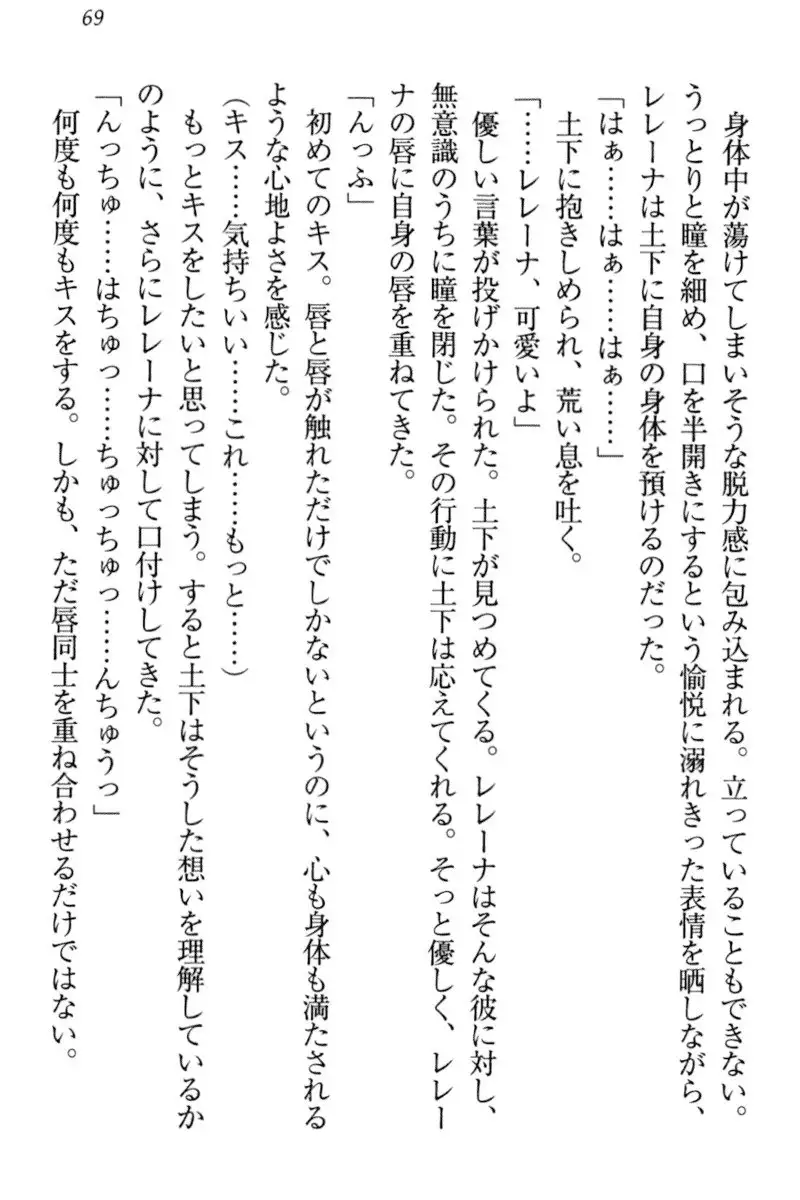 69
身体中が蕩けてしまいそうな脱力感に包み込まれる。立っていることもできない。
うっとりと瞳を細め、口を半開きにするという愉悦に溺れきった表情を晒しながら、
レレーナは土下に自身の身体を預けるのだった。
「はぁ……はぁ……はぁ……」
土下に抱きしめられ、荒い息を吐く。
「……レレーナ、可愛いよ」
優しい言葉が投げかけられた。土下が見つめてくる。レレーナはそんな彼に対し、
無意識のうちに瞳を閉じた。その行動に土下は応えてくれる。そっと優しく、レレー
ナの唇に自身の唇を重ねてきた。
「んっふ」
初めてのキス。唇と唇が触れただけでしかないというのに、心も身体も満たされる
ような心地よさを感じた。
(キス……気持ちいい……これ……もっと……)
もっとキスをしたいと思ってしまう。すると土下はそうした想いを理解しているか
のように、さらにレレーナに対して口付けしてきた。
「んっちゅ……はちゅっ……ちゅっちゅっ……んちゅうっ」
何度も何度もキスをする。しかも、ただ唇同士を重ね合わせるだけではない。